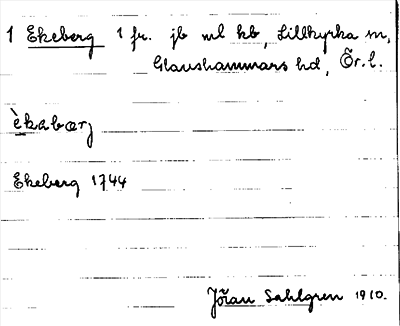 1 Ekeberg 1 fr. jb ml kb, Lillkyrka sn,
Glanshammars hd, Ör. l.
èkabærj
Ekeberg 1744
Jöran Sahlgren 1910.